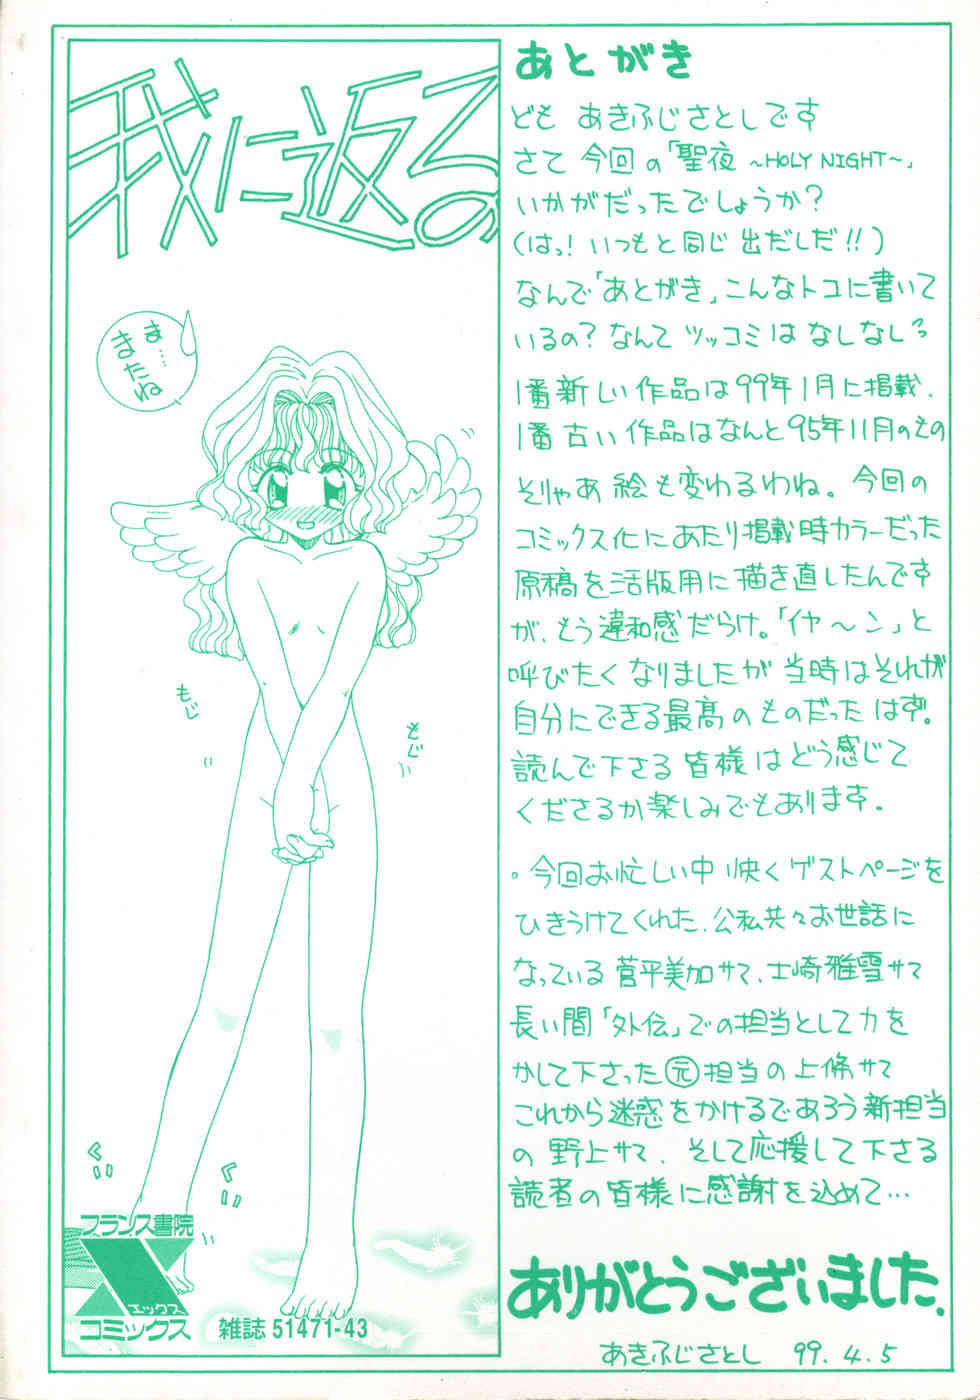 我に返るの
ま…
またね
もじ
もじ
ぐい
ぐい
フランス書院
X
エックス
コミックス
雑誌 51471-43
あとがき
ども あきふじさとしです
さて 今回の「聖夜 〜HOLY NIGHT〜」
いかがだったでしょうか?
(はっ! いつもと同じ出だしだ!!)
なんで「あとがき」こんなトコに書いて
いるの? なんてツッコミは なしなしっ
1番新しい作品は99年1月に掲載、
1番古い作品はなんと95年11月のもの
そりゃあ絵も変わるわね。今回の
コミックス化にあたり掲載時カラーだった
原稿を活版用に描き直したんです
が、もう違和感だらけ。「イヤ〜ン」と
呼びたくなりましたが当時はそれが
自分にできる最高のものだったはず。
読んで下さる皆様はどう感じて
くださるか楽しみでもあります。
・今回お忙しい中快くゲストページを
ひきうけてくれた、公私共々お世話に
なっている菅平美加サマ、士崎雅雪サマ
長い間「外伝」での担当として力を
かして下さった 元 担当の上條サマ
これから迷惑をかけるであろう新担当
の野上サマ、そして応援して下さる
読者の皆様に感謝を込めて…
ありがとうございました.
あきふじさとし 99.4.5